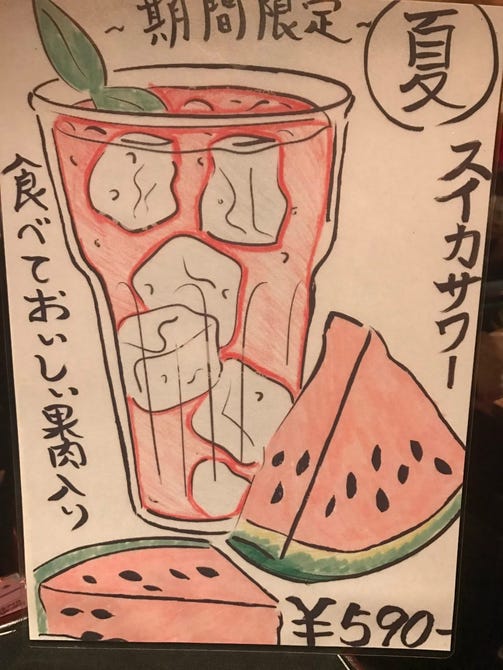 ～期間限定～
夏
スイカサワー
食べておいしい果肉入り
¥590-